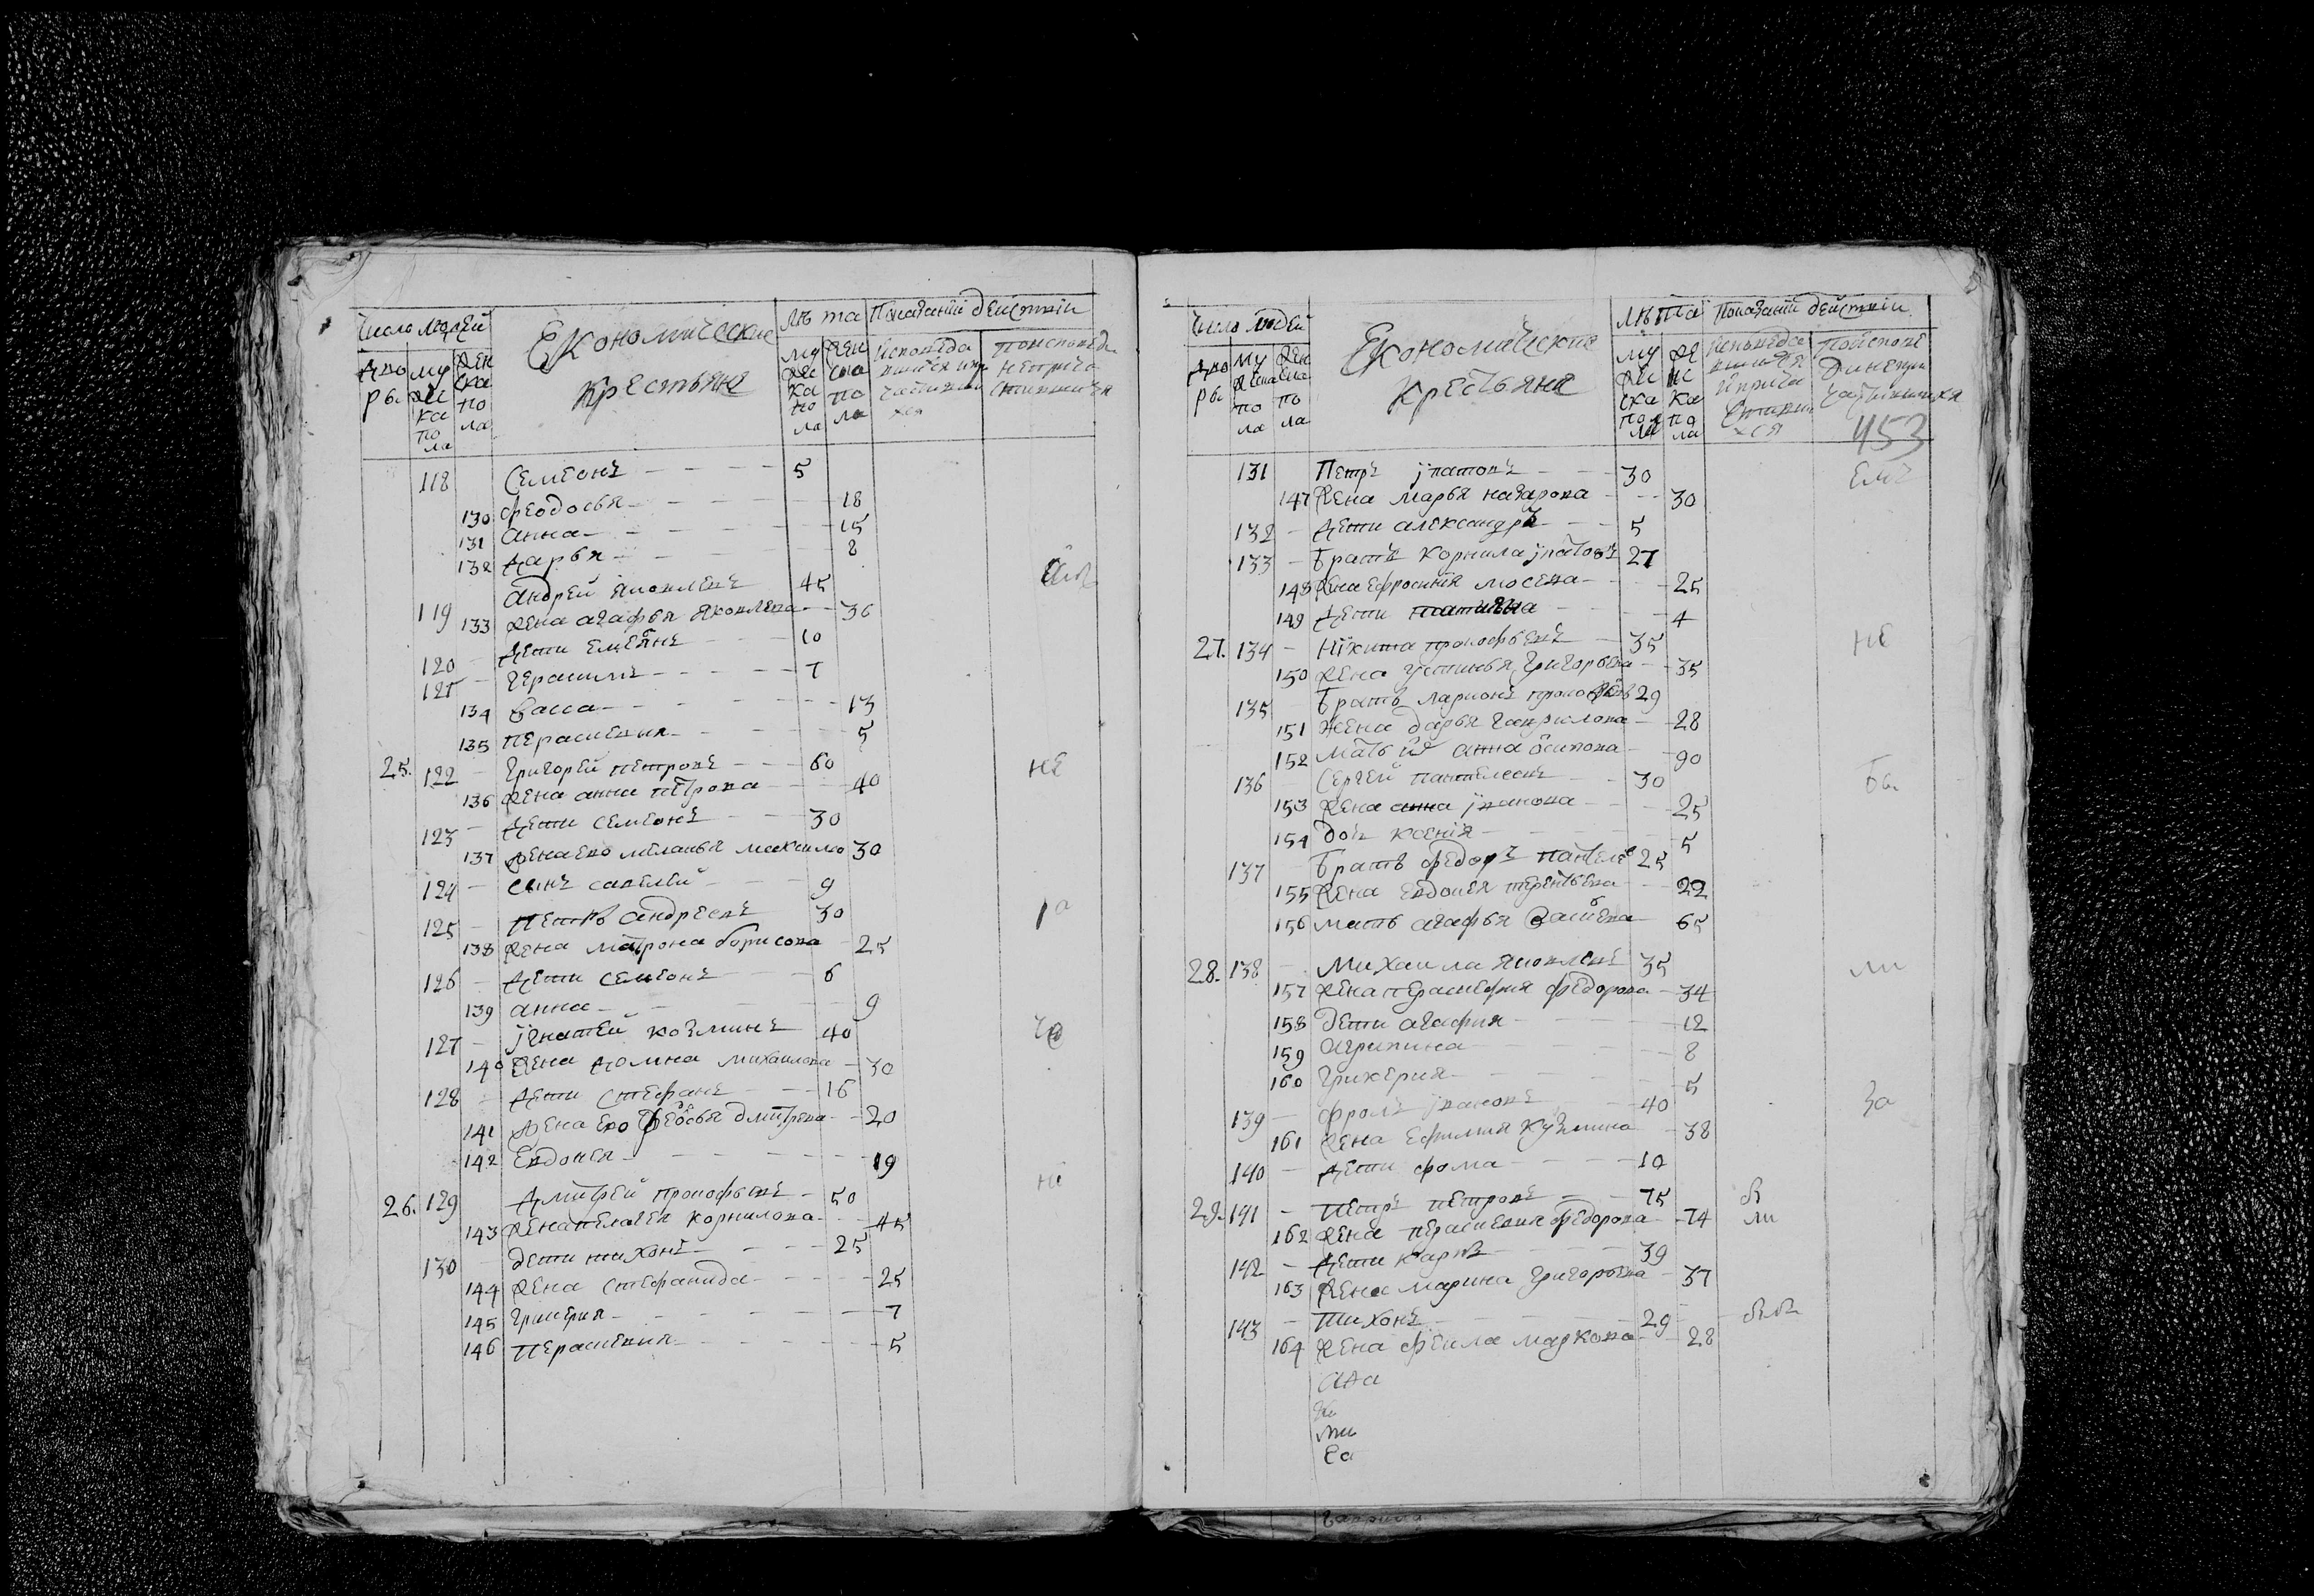 Число людей
Економические
крестьяне
лѣта
Показанiи действiи
дво
ры
му
жес
ка
по
ла
жен
ска
по
ла
118 Семеонъ 5
130 феодосья 18
131 анна 15
132 дарья 8
119 андрей яковлевъ 45
133 жена агафья яковлева 36
120 дети Емелянъ 10
121 герасимъ 7
134 васа 13
135 перасковия 5
25. 122 григорей петровъ 60 не
136 жена анна петрова 40
123 дети семеонъ 30
137 жена ево меланья максимо 30
124 сынъ савелей 9
125 петръ андреевъ 30
138 жена матрона борисова 25
126 дети семеонъ 6
139 анна 9
127 jгнатей козминъ 40
140 жена домна михаилова 30
128 дети стефанъ 16
141 жена ево феодосья дмитрева 20
142 Евдокея 19
26. 129 дмитрей прокофьевъ 50
143 жена пелагея корнилова 45
130 дети тихонъ 25
144 жена стефанида 25
145 гликерия 7
146 перасковия 5
Число людей
Економические
крестьяне
лѣта
Показанiи действiи
453
131 Петръ jпатовъ 30
147 жена марья назарова 30
132 дети александръ 5
133 братъ корнила jпатовъ 27
148 жена ефросиния мосева 25
149 дети татияна 4
27. 134 никита прокофьевъ 35 не
150 жена устинья григорьева 35
135 братъ ларионъ прокофьевъ 29
151 жена дарья гаврилова 28
152 мать их анна осипова 90
136 Сергей пантелеевъ 30
153 жена анна jванова 25
154 дочь ксения 5
137 братъ федоръ пантеле 25
155 жена евдокея терентьева 22
156 мать агафья васильева 65
28. 138 михаила яковлевъ 35
157 жена перасковия федорова 34
158 дети агафия 12
159 агрипина 8
160 гликерия 5
139 фролъ jвановъ 40 за
161 жена Ефимия кузмина 38
140 дети фома 10
29. 141 петръ петровъ 75
162 жена перасковия федорова 74
142 дети карпъ 39
163 жена марина григорьева 37
143 тихонъ 29
164 жена фекла маркова 28